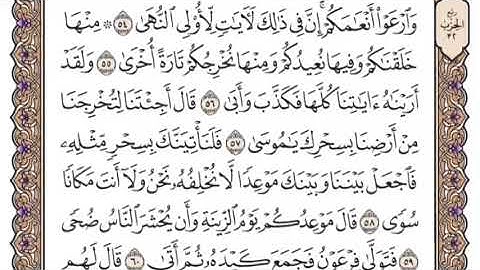 وَٱرْعَوْا۟ أَنْعَـٰمَكُمْ إِنَّ فِى ذَٰلِكَ لَـَٔايَـٰتٍ لِّأُو۟لِى ٱلنُّهَىٰ ٥٤ ۞ مِنْهَا
خَلَقْنَـٰكُمْ وَفِيهَا نُعِيدُكُمْ وَمِنْهَا نُخْرِجُكُمْ تَارَةً أُخْرَىٰ ٥٥ وَلَقَدْ
أَرَيْنَـٰهُ ءَايَـٰتِنَا كُلَّهَا فَكَذَّبَ وَأَبَىٰ ٥٦ قَالَ أَجِئْتَنَا لِتُخْرِجَنَا
مِنْ أَرْضِنَا بِسِحْرِكَ يَـٰمُوسَىٰ ٥٧ فَلَنَأْتِيَنَّكَ بِسِحْرٍ مِّثْلِهِۦ
فَٱجْعَلْ بَيْنَنَا وَبَيْنَكَ مَوْعِدًا لَّا نُخْلِفُهُۥ نَحْنُ وَلَآ أَنتَ مَكَانًا
سُوًى ٥٨ قَالَ مَوْعِدُكُمْ يَوْمُ ٱلزِّينَةِ وَأَن يُحْشَرَ ٱلنَّاسُ ضُحًى
٥٩ فَتَوَلَّىٰ فِرْعَوْنُ فَجَمَعَ كَيْدَهُۥ ثُمَّ أَتَىٰ ٦٠ قَالَ لَهُم
ربع
الحزب
٣٢